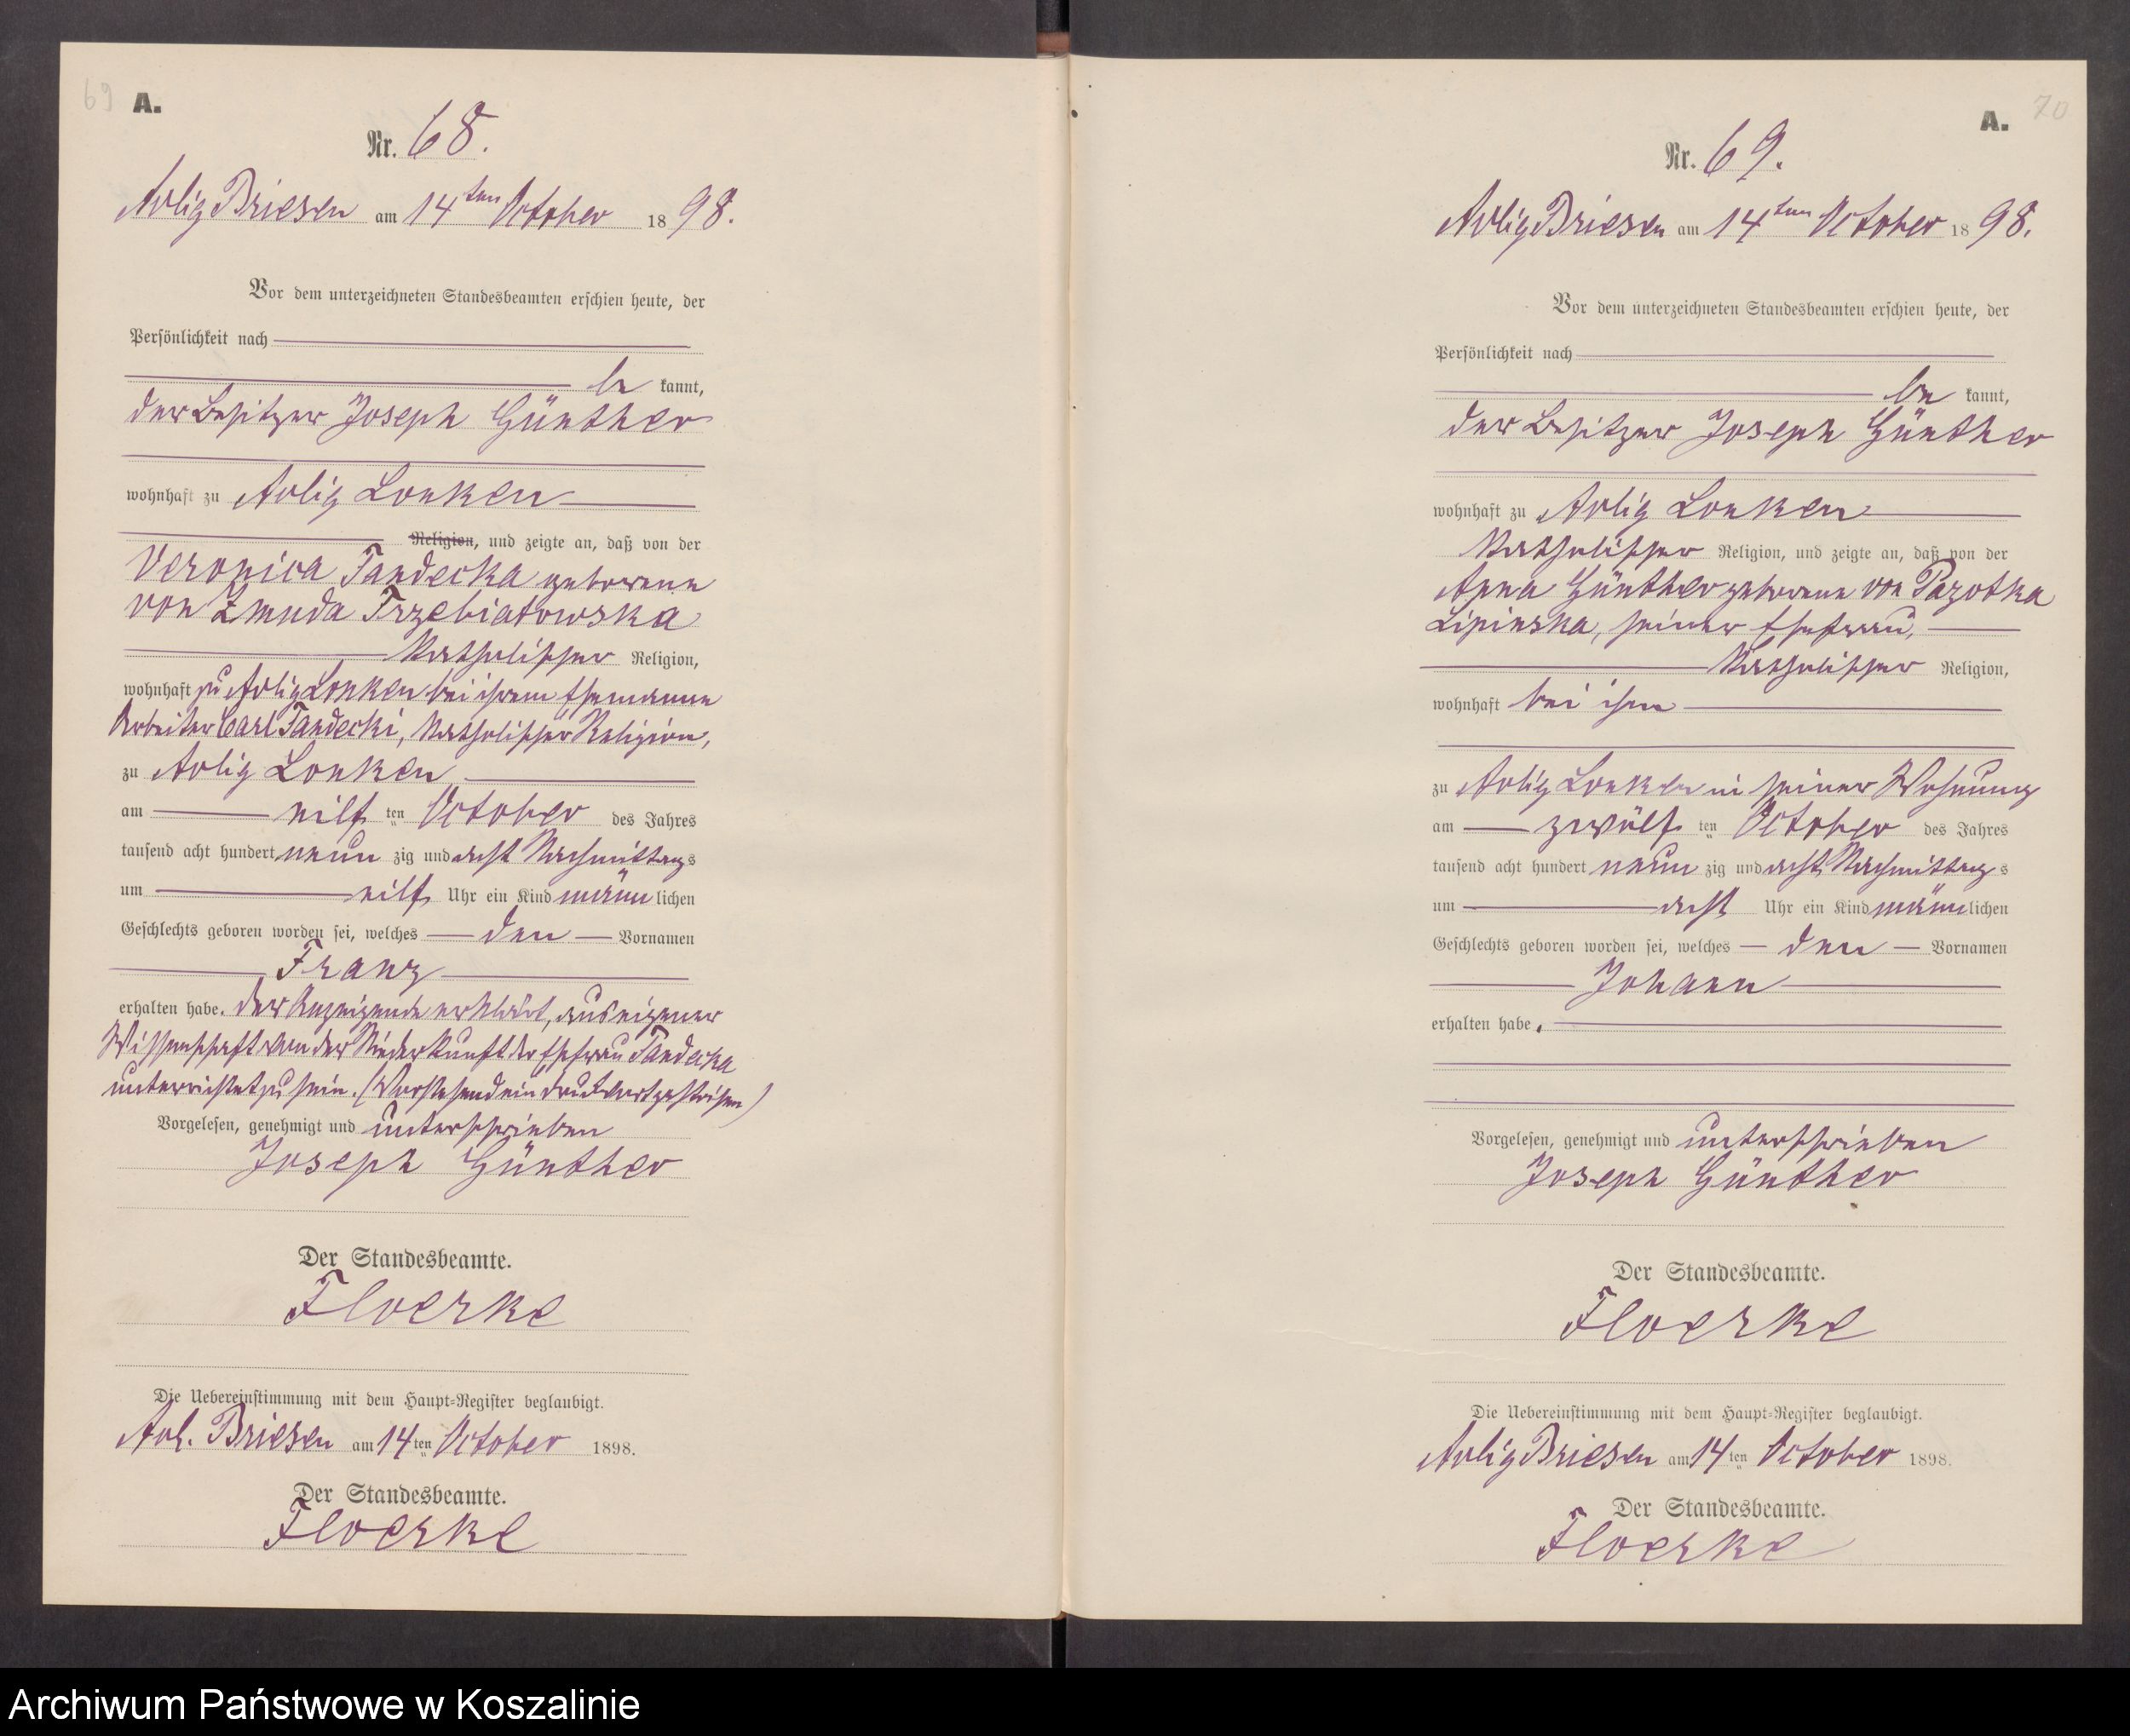 69 A.
Nr. 68.
Adlig Briesen am 14ten October 1898.
Vor dem unterzeichneten Standesbeamten erschien heute, der
Persönlichkeit nach
be kannt,
der Besitzer Joseph Günther
wohnhaft zu Adlig Lonken
Religion, und zeigte an, daß von der
Veronica Tandecka geborene
von Zmuda Trzebiatowska
katholischer Religion,
wohnhaft zu Adlig Lonken bei ihrem Ehemanne
Arbeiter Carl Tandecki, katholischer Religion,
zu Adlig Lonken
am eilf ten October des Jahres
tausend acht hundert neun zig und acht Nachmittags
um eilf Uhr ein Kind männlichen
Geschlechts geboren worden sei, welches den Vornamen
Franz
erhalten habe. Der Anzeigende erklärt, aus eigener
Wissenschaft von der Niederkunft der Ehefrau Tandecka
unterrichtet zu sein. (Vorstehend ein Druckwort gestrichen)
Vorgelesen, genehmigt und unterschrieben
Joseph Günther
Der Standesbeamte.
Floerke
Die Uebereinstimmung mit dem Haupt-Register beglaubigt.
Adl. Briesen am 14ten October 1898.
Der Standesbeamte.
Floerke
A. 70
Nr. 69.
Adlig Briesen am 14ten October 1898.
Vor dem unterzeichneten Standesbeamten erschien heute, der
Persönlichkeit nach
be kannt,
der Besitzer Joseph Günther
wohnhaft zu Adlig Lonken
katholischer Religion, und zeigte an, daß von der
Anna Günther geborene von Pazotka
Lipinska, seiner Ehefrau,
katholischer Religion,
wohnhaft bei ihm
zu Adlig Lonken in seiner Wohnung
am zwölf ten October des Jahres
tausend acht hundert neun zig und acht Nachmittags
um acht Uhr ein Kind männlichen
Geschlechts geboren worden sei, welches den Vornamen
Johann
erhalten habe.
Vorgelesen, genehmigt und unterschrieben
Joseph Günther
Der Standesbeamte.
Floerke
Die Uebereinstimmung mit dem Haupt-Register beglaubigt.
Adlig Briesen am 14ten October 1898.
Der Standesbeamte.
Floerke
Archiwum Państwowe w Koszalinie